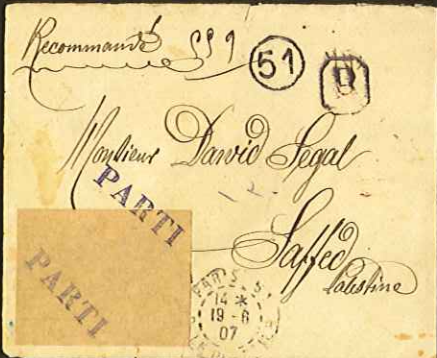 Recommandé 991 51 R
Monsieur David Segal
PARTI
Saffed
Palestine
PARTI
PARIS
14*
19-6
07